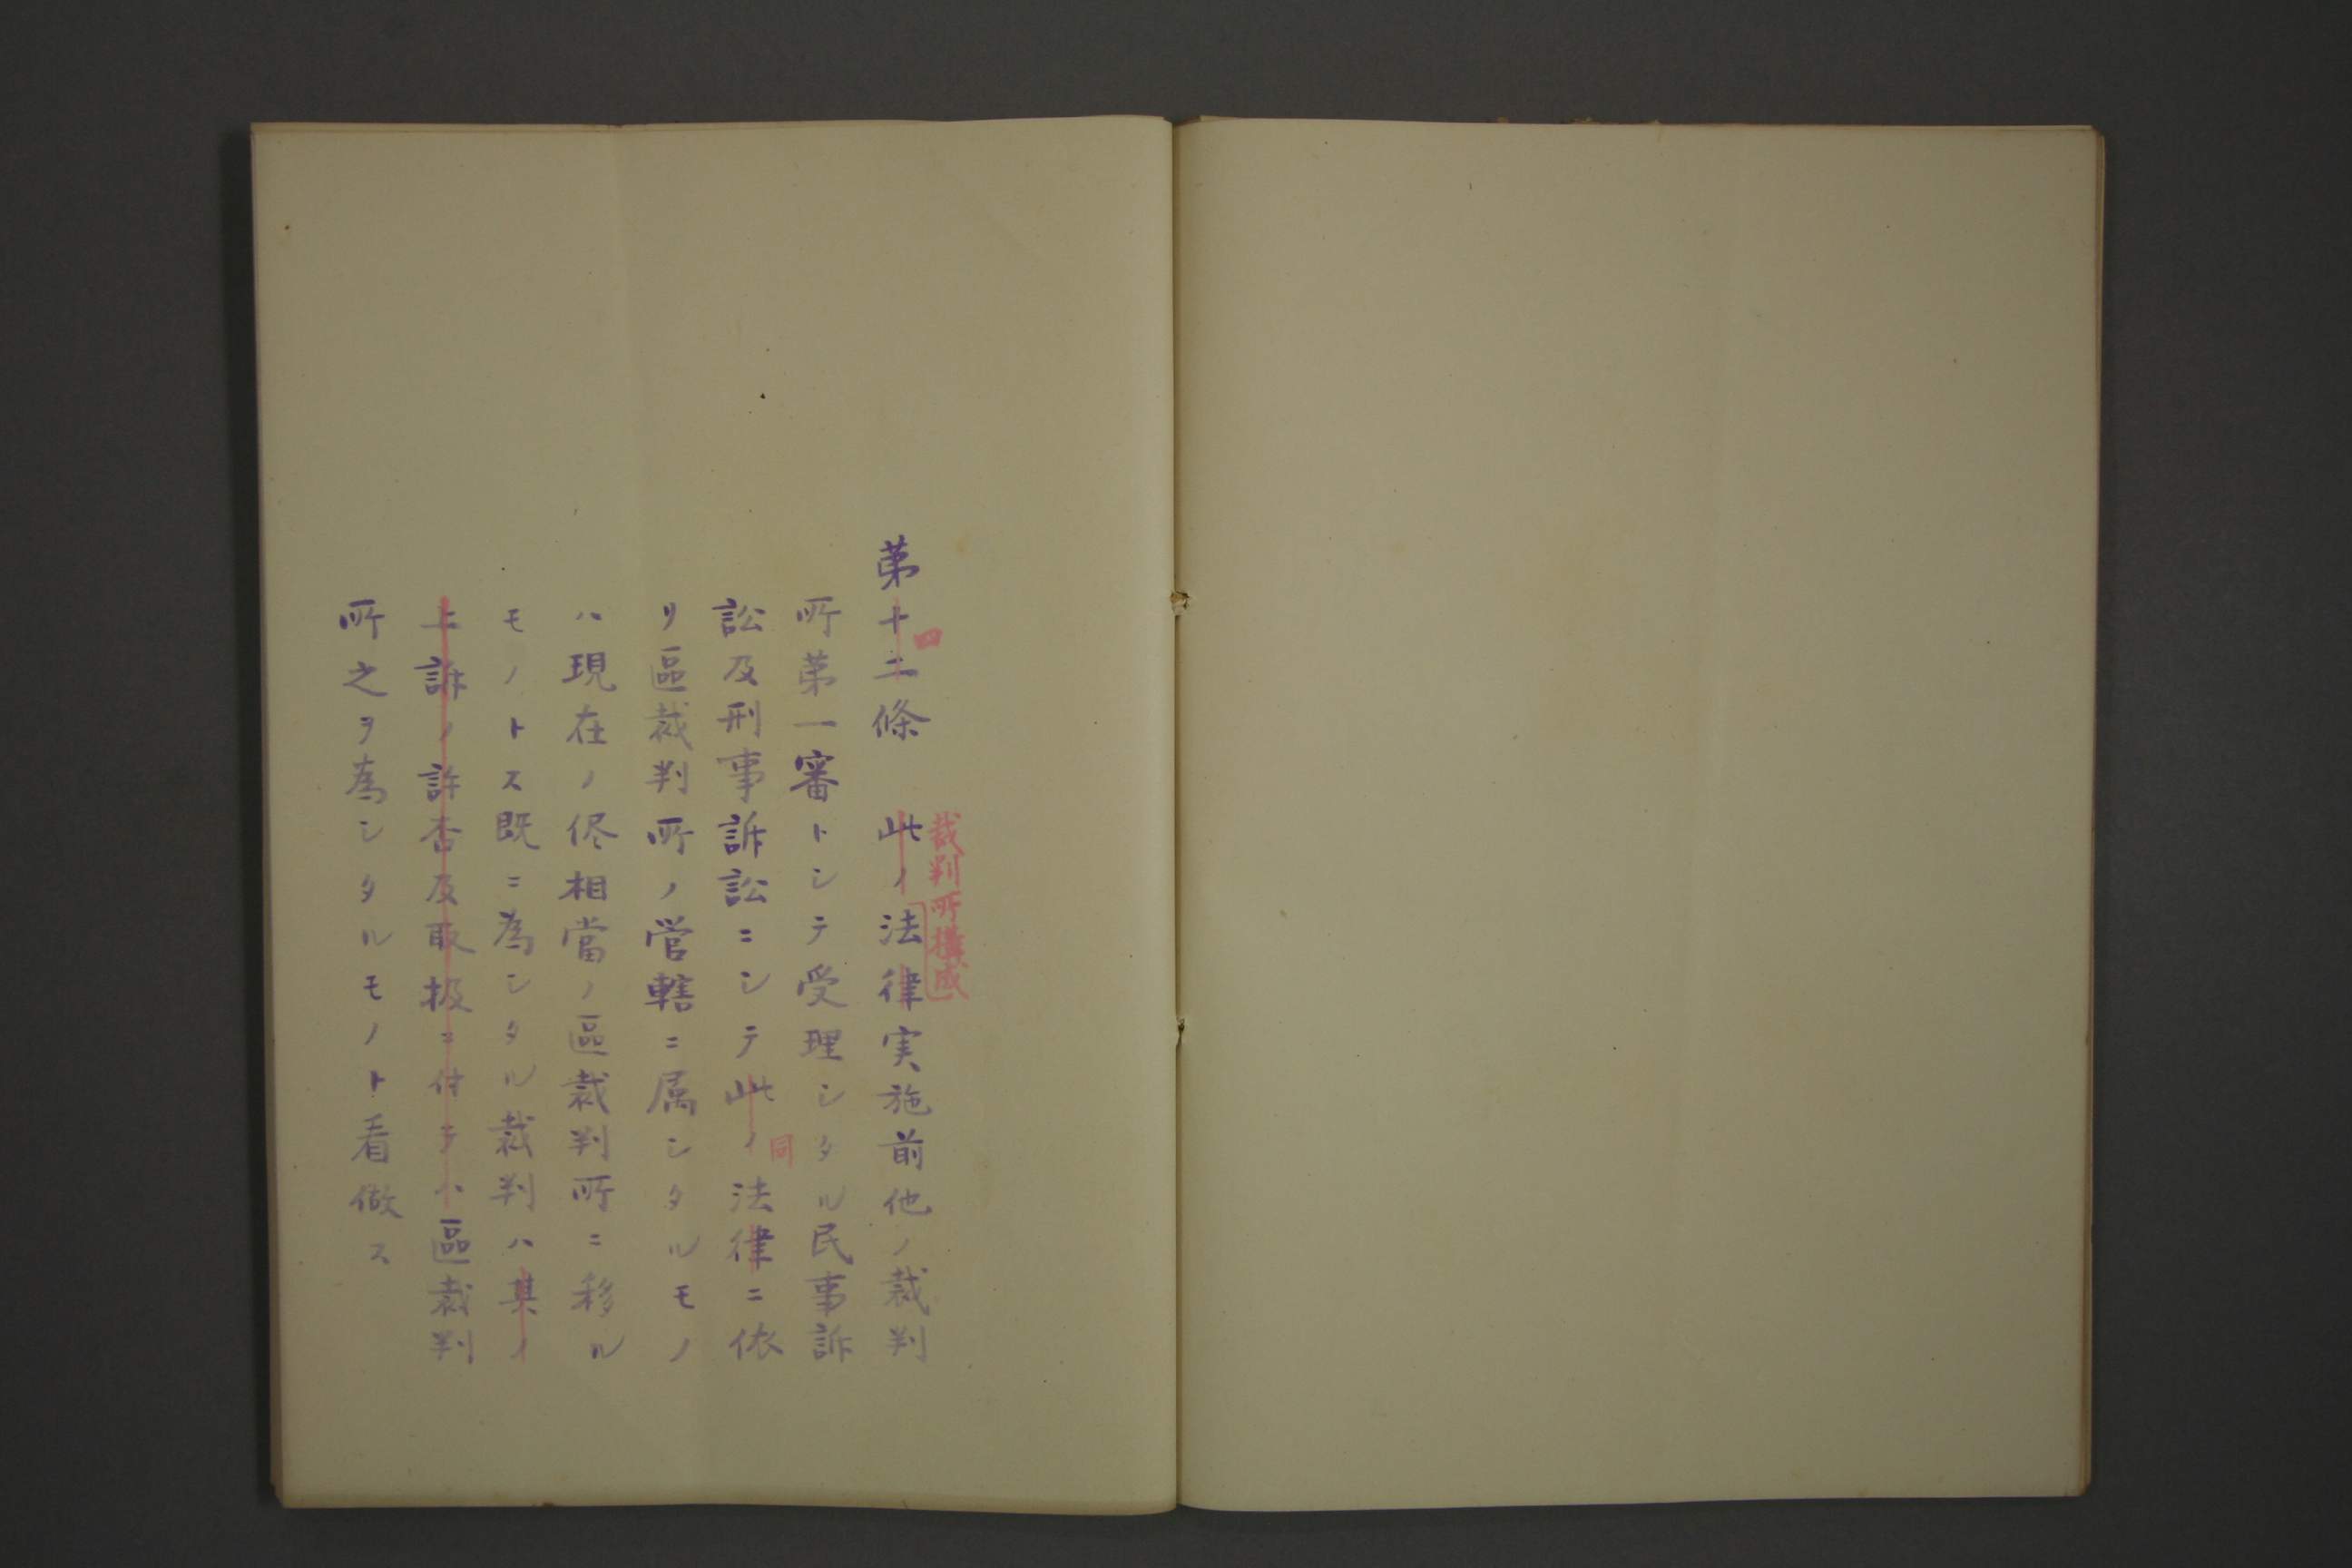 第十二條　此ノ法律実施前他ノ裁判
四
裁判所構成
所第一審トシテ受理シタル民事訴
訟及刑事訴訟ニシテ此ノ法律ニ依
同
リ區裁判所ノ管轄ニ属シタルモノ
ハ現在ノ侭相當ノ區裁判所ニ移ル
モノトス既ニ為シタル裁判ハ其ノ
上訴ノ許否及取扱ニ付テハ區裁判
所之ヲ為シタルモノト看做ス